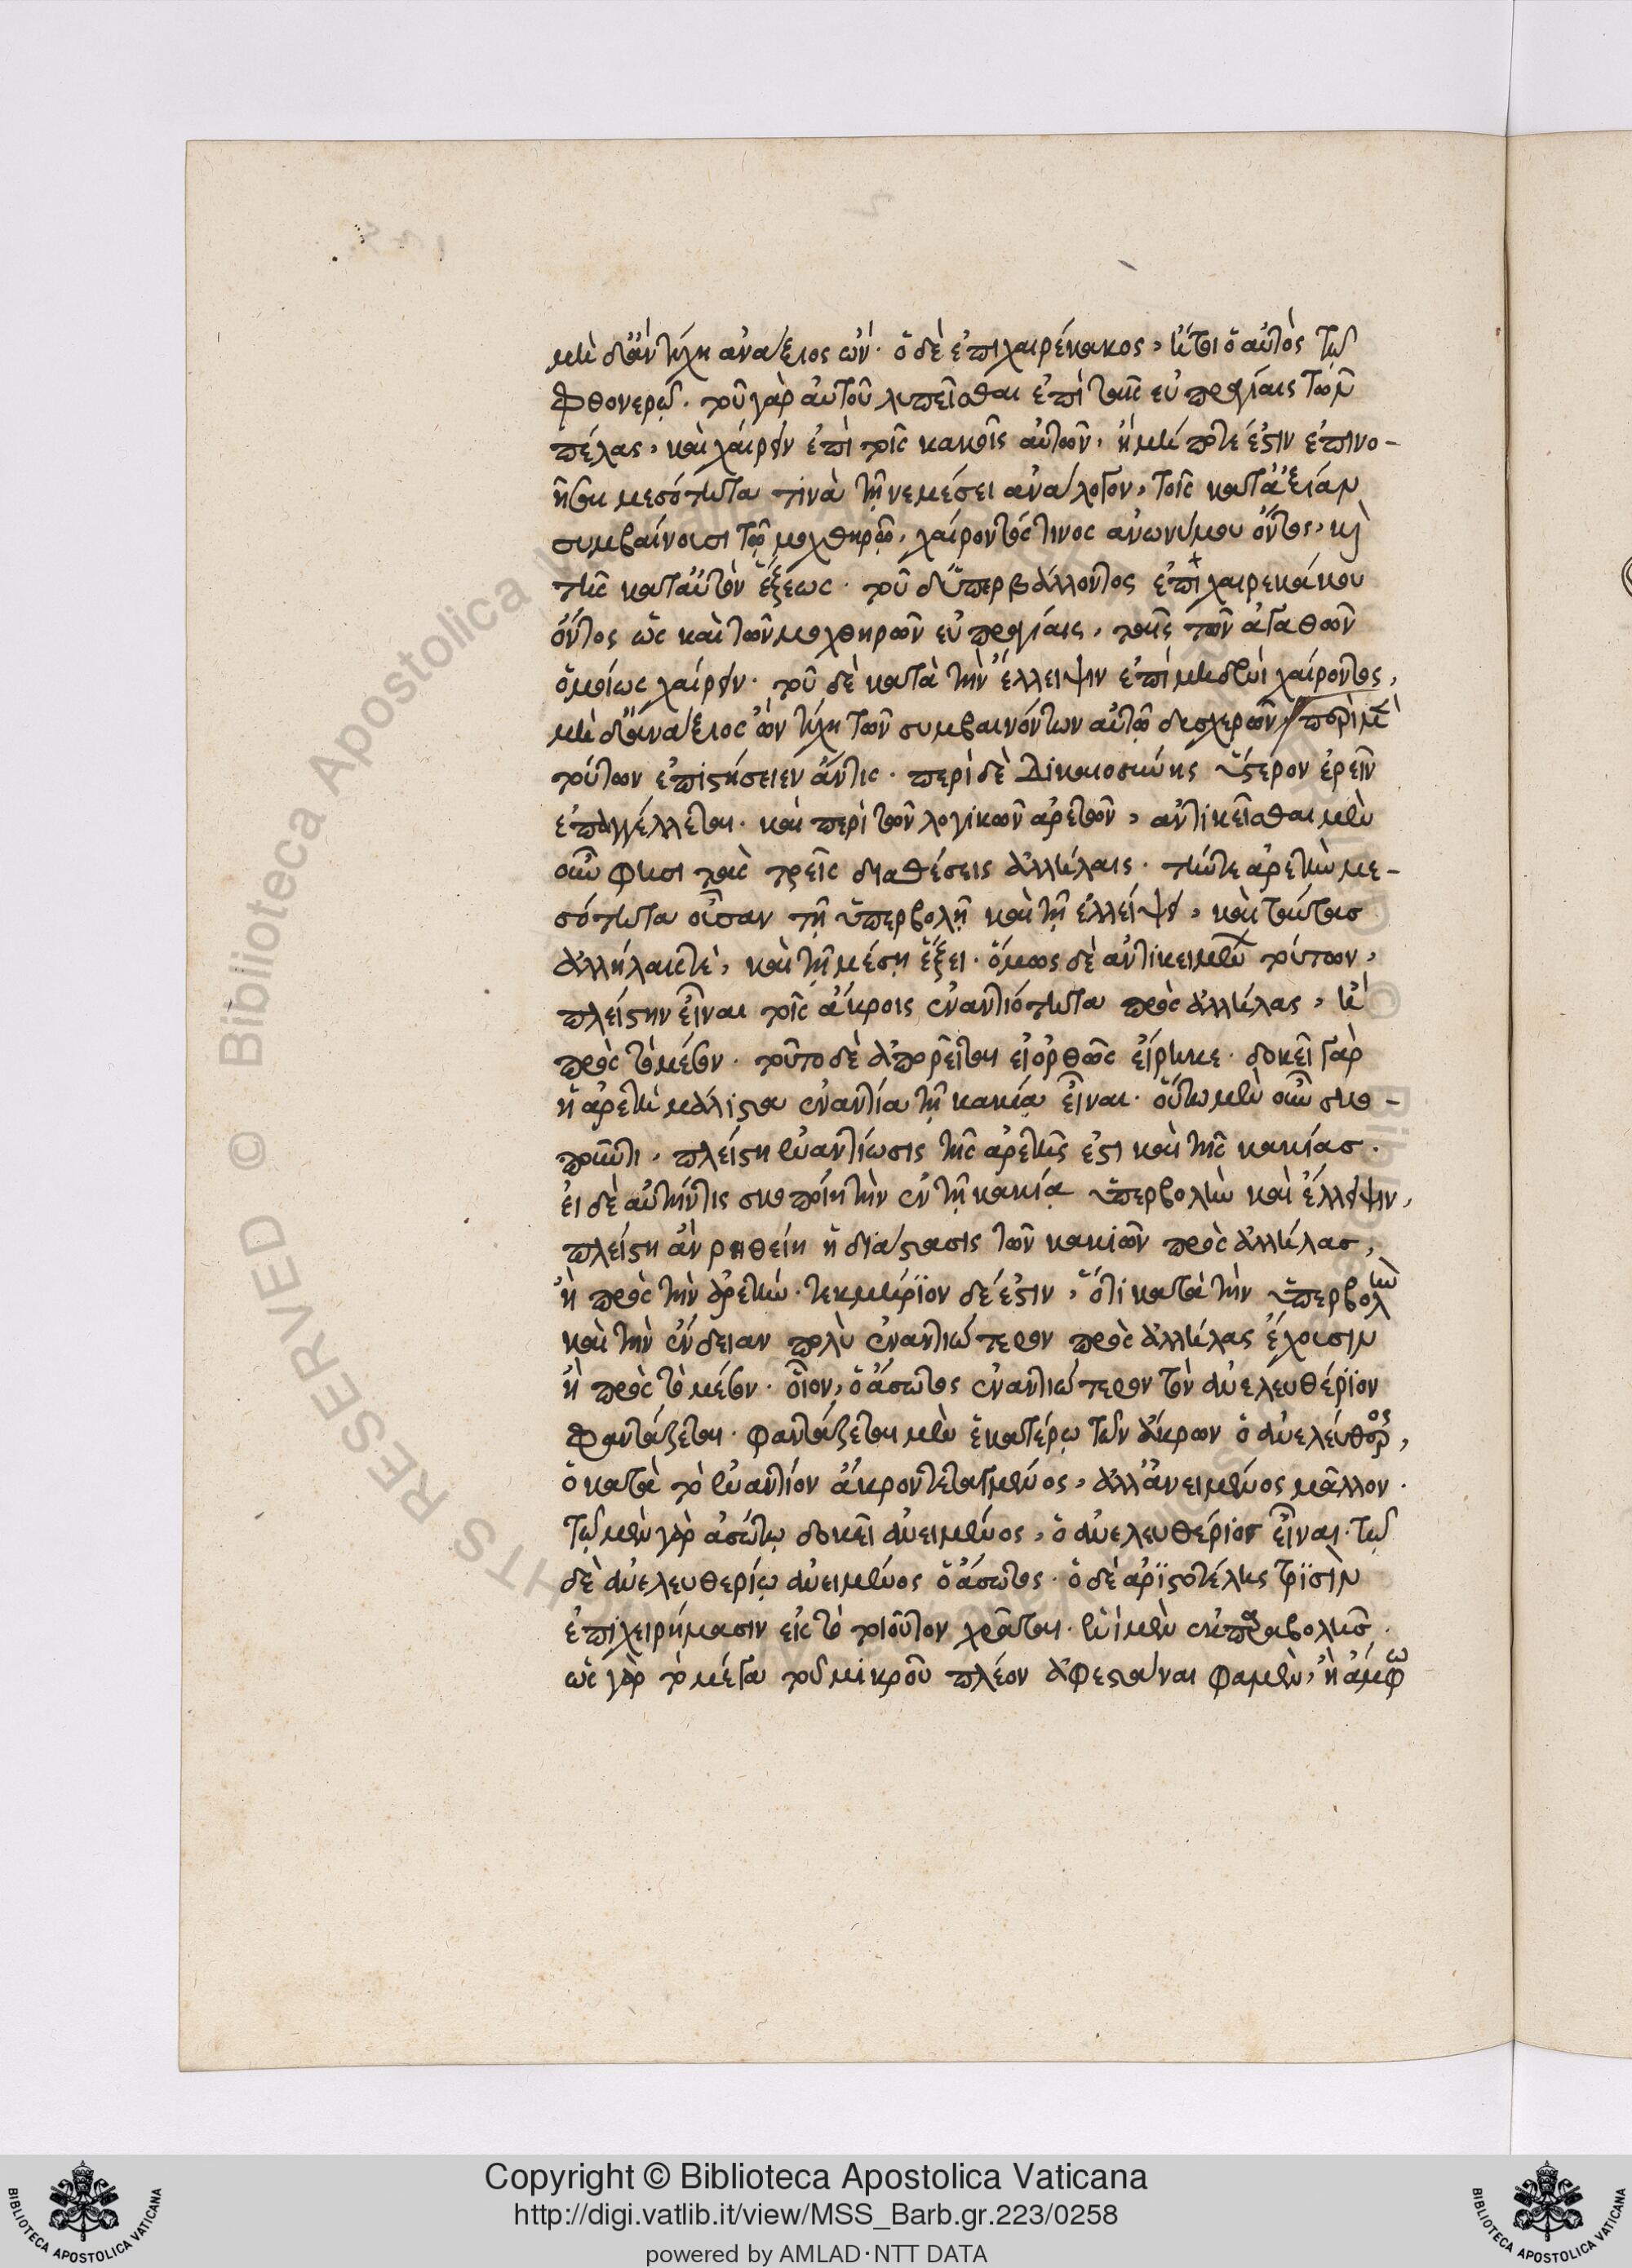 μὴ δ' ἂν τύχῃ ἀνάξιος ὤν. ὁ δὲ ἐπιχαιρέκακος, ἤτοι ὁ αὐτὸς τῷ
φθονερῷ. τοῦ γὰρ αὐτοῦ λυπεῖσθαι ἐπὶ ταῖς εὐπραγίαις τῶν
πέλας, καὶ χαίρειν ἐπὶ τοῖς κακοῖς αὐτῶν. ἢ μή ποτέ ἐστιν ἐπινο-
ῆσαι μεσότητα τινὰ τῇ νεμέσει ἀνάλογον, τοῖς κατ' ἀξίαν
συμβαίνουσι τῷ μοχθηρῷ, χαίροντός τινος ἀνωνύμου ὄντος, καὶ
τῆς κατ' αὐτὸν ἕξεως. τοῦ δ' ὑπερβάλλοντος ἐπιχαιρεκάκου
ὄντος ὡς καὶ τῶν μοχθηρῶν εὐπραγίαις, ταῖς τῶν ἀγαθῶν
ὁμοίως χαίρειν. τοῦ δὲ κατὰ τὴν ἔλλειψιν ἐπὶ μηδενὶ χαίροντος,
μὴ δ' ἂν ἀνάξιος ὢν τύχῃ τῶν συμβαινόντων αὐτῷ δυσχερῶν, περὶ μὲν
τούτων ἐπιστήσειεν ἄν τις. περὶ δὲ Δικαιοσύνης ὕστερον ἐρεῖν
ἐπαγγέλλεται. καὶ περὶ τῶν λογικῶν ἀρετῶν, ἀντικεῖσθαι μὲν
οὖν φησι τὰς τρεῖς διαθέσεις ἀλλήλαις. τήν τε ἀρετὴν με-
σότητα οὖσαν τῇ ὑπερβολῇ καὶ τῇ ἐλλείψει, καὶ ταύτας
ἀλλήλαις τὲ, καὶ τῇ μέσῃ ἕξει. ὅμως δὲ ἀντικειμένων τούτων,
πλείστην εἶναι τοῖς ἄκροις ἐναντιότητα πρὸς ἀλλήλας, ἢ
πρὸς τὸ μέσον. τοῦτο δὲ ἀπορεῖται εἰ ὀρθῶς εἴρηκε. δοκεῖ γὰρ
ἡ ἀρετὴ μάλιστα ἐναντία τῇ κακίᾳ εἶναι. οὕτω μὲν οὖν σκο-
ποῦντι, πλείστη ἐναντίωσις τῆς ἀρετῆς ἐστι καὶ τῆς κακίας.
εἰ δὲ αὐτήν τις σκοποίη τὴν ἐν τῇ κακίᾳ ὑπερβολὴν καὶ ἔλλειψιν,
πλείστη ἂν ῥηθείη ἡ διάστασις τῶν κακιῶν πρὸς ἀλλήλας,
ἢ πρὸς τὴν ἀρετήν. τεκμήριον δέ ἐστιν, ὅτι κατὰ τὴν ὑπερβολὴν
καὶ τὴν ἔνδειαν πολὺ ἐναντιώτερον πρὸς ἀλλήλας ἔχουσιν
ἢ πρὸς τὸ μέσον. οἷον, ὁ ἄσωτος ἐναντιώτερον τὸν ἀνελευθέριον
φαντάζεται. φαντάζεται μὲν ἑκατέρῳ τῶν ἄκρων ὁ ἀνελεύθερος,
ὁ κατὰ τὸ ἐναντίον ἄκρον τεταγμένος, ἀλλ' ἀνειμένος μᾶλλον.
τῷ μὲν γὰρ ἀσώτῳ δοκεῖ ἀνειμένος, ὁ ἀνελευθέριος εἶναι. τῷ
δὲ ἀνελευθερίῳ ἀνειμένος ὁ ἄσωτος. ὁ δὲ ἀριστοτέλης τρισὶν
ἐπιχειρήμασιν εἰς τὸ τοιοῦτον χρᾶται. ἑνὶ μὲν ἐκ παραβολῆς.
ὡς γὰρ τὸ μέγα τοῦ μικροῦ πλέον ἀφεστάναι φαμὲν, ἢ ἄμφω
Copyright © Biblioteca Apostolica Vaticana
http://digi.vatlib.it/view/MSS_Barb.gr.223/0258
powered by AMLAD·NTT DATA
BIBLIOTECA APOSTOLICA VATICANA
BIBLIOTECA APOSTOLICA VATICANA